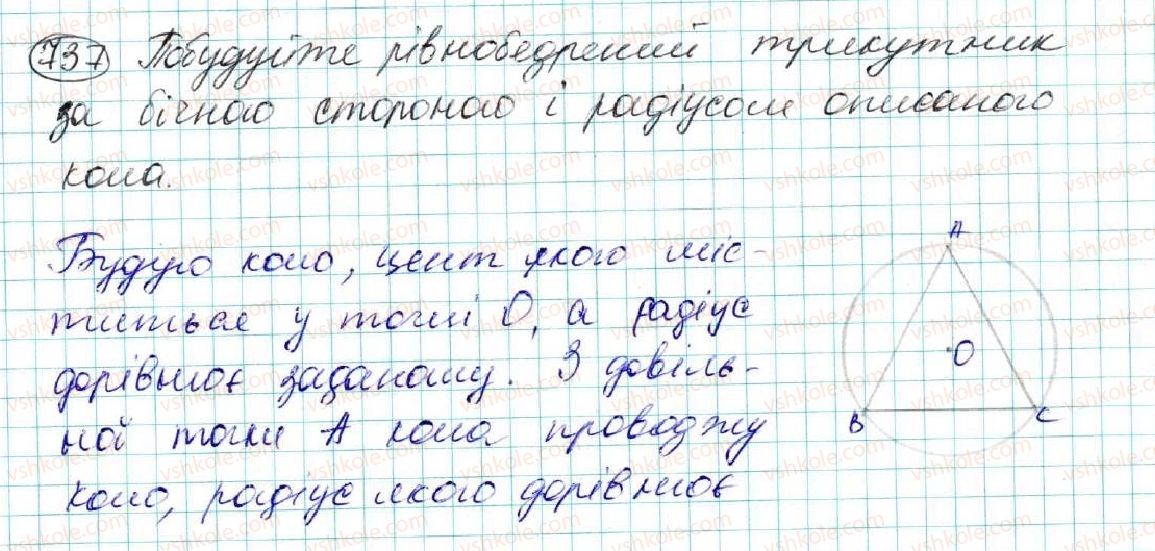 737 Побудуйте рівнобедрений трикутник
за бічною стороною і радіусом описаного
кола.
Будую коло, цент якого міс-
титься у точці О, а радіус
дорівнює заданому. З довіль-
ної точки А кола проводжу
коло, радіус якого дорівнює
A
O
B
C